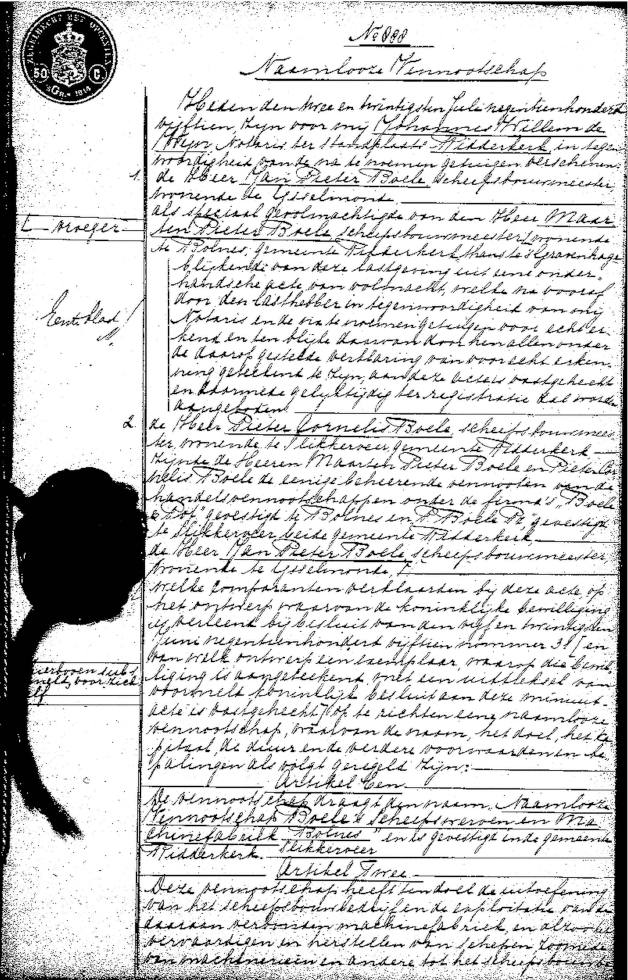 ZEGELRECHT MET OPCENTEN
50 C.
No 888
Naamlooze Vennootschap
Heden den twee en twintigsten Juli negentienhonderd
vijftien, zijn voor mij Johannes Willem de
Notaris ter standplaats Ridderkerk, in tegen
woordigheid van de na te noemen getuigen verschenen:
1. de Heer Jan Pieter Boele scheepsbouwmeester,
wonende te IJsselmonde
als speciaal gevolmachtigde van den Heer Maar
ten Pieter Boele, scheepsbouwmeester, wonende
vroeger
te Bolnes, gemeente Ridderkerk, thans te 's Gravenhage
blijkende van deze lastgeving uit eene onder-
handsche acte van volmacht, welke na vooraf
Eerste blad
door den lasthebber in tegenwoordigheid van mij
Notaris en de na te noemen getuigen voor echt er-
kend en ten blijke daarvan door hen allen onder
de daarop gestelde verklaring van voor echt erken-
ning geteekend te zijn, aan deze acte is vastgehecht
en daarmede gelijktijdig ter registratie zal worden
aangeboden.
2. de Heer Pieter Cornelis Boele, scheepsbouwmees
ter, wonende te Slikkerveer, gemeente Ridderkerk
zijnde de Heeren Maarten Pieter Boele en Pieter Cor
nelis Boele de eenige beheerende vennooten van de
handelsvennootschappen onder de firma's "Boele
& Pot" gevestigd te Bolnes en "P. Boele Pz" gevestigd
te Slikkerveer, beide gemeente Ridderkerk
de Heer Jan Pieter Boele, scheepsbouwmeester
wonende te IJsselmonde,
welke comparanten verklaarden bij deze acte, op
het ontwerp waarvan de koninklijke bewilliging
is verleend bij besluit van den vijf en twintigsten
Juni negentienhonderd vijftien nummer 31 en
van welk ontwerp een exemplaar, waarop die bewil
hierboven sub 1
liging is aangeteekend, met een uittreksel van
gemeld, voor zich
voormeld koninklijk besluit aan deze minuut-
zelf
acte is vastgehecht, op te richten eene naamlooze
vennootschap, waarvan de naam, het doel, het ka
pitaal, de duur en de verdere voorwaarden en be
palingen als volgt geregeld zijn:
Artikel Een
De vennootschap draagt den naam, Naamlooze
Vennootschap Boele's Scheepswerven en Ma
chinefabriek Bolnes" en is gevestigd in de gemeente
Ridderkerk. Slikkerveer
Artikel Twee
Deze vennootschap heeft ten doel de uitoefening
van het scheepsbouwbedrijf en de exploitatie van de
daaraan verbonden machinefabriek en alzoo het
vervaardigen en herstellen van schepen zoomede
van machinerieën en andere tot het